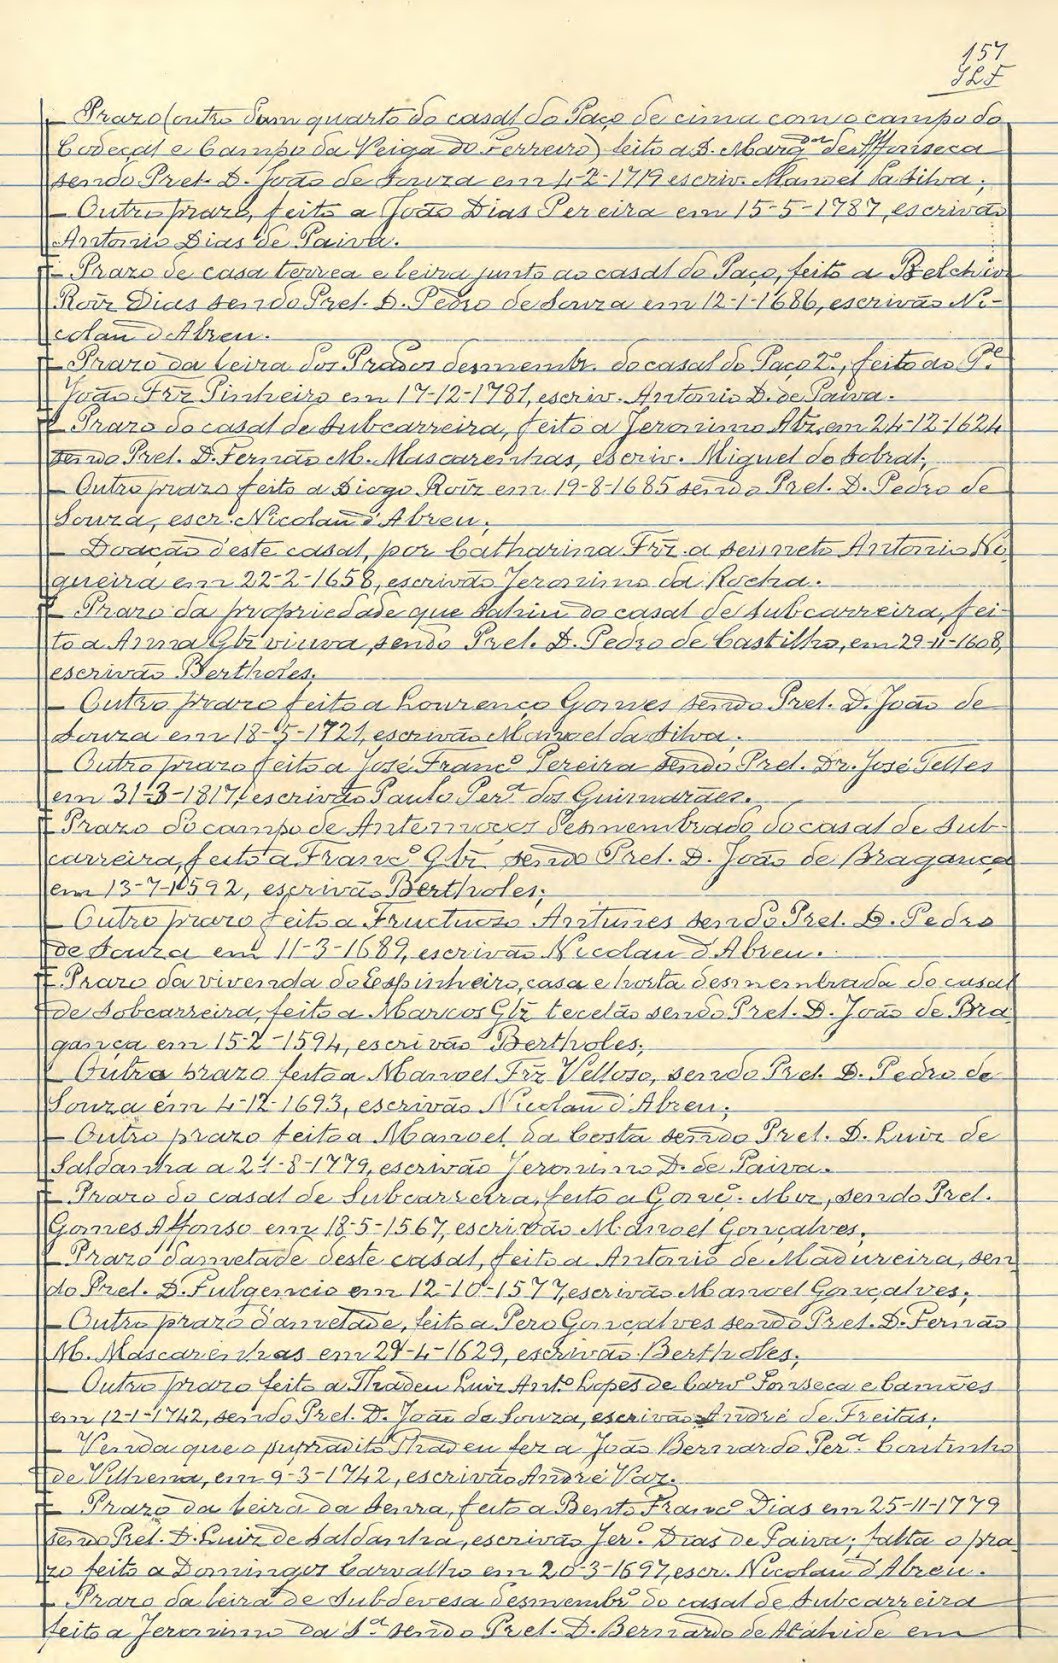 157
SLF
- Prazo (outro dum quarto do casal do Paço de cima com o campo do
Codeçal e Campo da Veiga do Ferreiro) feito a D. Marg.da de Affonseca
sendo Prel. D. João de Souza em 4-2-1719 escriv. Manoel da Silva;
- Outro prazo, feito a João Dias Pereira em 15-5-1787, escrivão
Antonio Dias de Paiva.
- Prazo de casa terrea e leira junto ao casal do Paço, feito a Belchior
Roiz Dias sendo Prel. D. Pedro de Souza em 12-1-1686, escrivão Ni-
colau d'Abreu.
- Prazo da leira dos Prados desmembr. do casal do Paço 2º, feito ao P.e
João Frz Pinheiro em 17-12-1781, escriv. Antonio D. de Paiva.
- Prazo do casal de Subcarreira, feito a Jeronimo Alz. em 24-12-1624
sendo Prel. D. Fernão M. Mascarenhas, escriv. Miguel do Sobral;
- Outro prazo feito a Diogo Roiz em 19-8-1685 sendo Prel. D. Pedro de
Souza, escr. Nicolau d'Abreu;
- Doação d'este casal, por Catharina Frz. a seu neto Antonio No
gueira em 22-2-1658, escrivão Jeronimo da Rocha.
- Prazo da propriedade que sahiu do casal de Subcarreira, fei-
to a Anna Glz viuva, sendo Prel. D. Pedro de Castilho, em 29-11-1608,
escrivão Bertholes;
- Outro prazo feito a Lourenço Gomes sendo Prel. D. João de
Souza em 18-5-1721, escrivão Manoel da Silva;
- Outro prazo feito a José Franc.o Pereira sendo Prel. Dr. José Telles
em 31-3-1817, escrivão Paulo Per.a dos Guimarães.
- Prazo do campo de desmembrado do casal de Sub-
carreira, feito a Franc.o Glz sendo Prel. D. João de Bragança
em 13-7-1592, escrivão Bertholes;
- Outro prazo feito a Fructuozo Antunes sendo Prel. D. Pedro
de Souza em 11-3-1689, escrivão Nicolau d'Abreu.
- Prazo da vivenda do Espinheiro, casa e horta desmembrada do casal
de Sobcarreira, feito a Marcos Glz tecelão sendo Prel. D. João de Bra
gança em 15-2-1594, escrivão Bertholes;
- Outro prazo feito a Manoel Frz Velloso, sendo Prel. D. Pedro de
Souza em 4-12-1693, escrivão Nicolau d'Abreu;
- Outro prazo feito a Manoel da Costa sendo Prel. D. Luiz de
Saldanha a 21-8-1779, escrivão Jeronimo D. de Paiva.
- Prazo do casal de Subcarreira, feito a Gonç.o Miz, sendo Prel.
Gomes Affonso em 18-5-1567, escrivão Manoel Gonçalves;
- Prazo d'ametade deste casal, feito a Antonio de Madureira, sen
do Prel. D. Fulgencio em 12-10-1577, escrivão Manoel Gonçalves;
- Outro prazo d'ametade, feito a Pero Gonçalves sendo Prel. D. Fernão
M. Mascarenhas em 29-4-1629, escrivão Bertholes;
- Outro prazo feito a Thadeu Luiz Ant.o Lopes de Carv.o Fonseca e Camões
em 12-1-1742, sendo Prel. D. João de Souza, escrivão André de Freitas;
- Venda que o supradito Thadeu fez a João Bernardo Per.a Coutinho
de Vilhena, em 9-3-1742, escrivão André Vaz.
- Prazo da leira da Senra, feito a Bento Franc.o Dias em 25-11-1779
sendo Prel. D. Luiz de Saldanha, escrivão Jer.o Dias de Paiva; falta o pra
zo feito a Domingos Carvalho em 20-3-1697, escr. Nicolau d'Abreu.
- Prazo da leira de Subdevesa desmembr.o do casal de Subcarreira
feito a Jeronimo da S.a sendo Prel. D. Bernardo de Atahide em